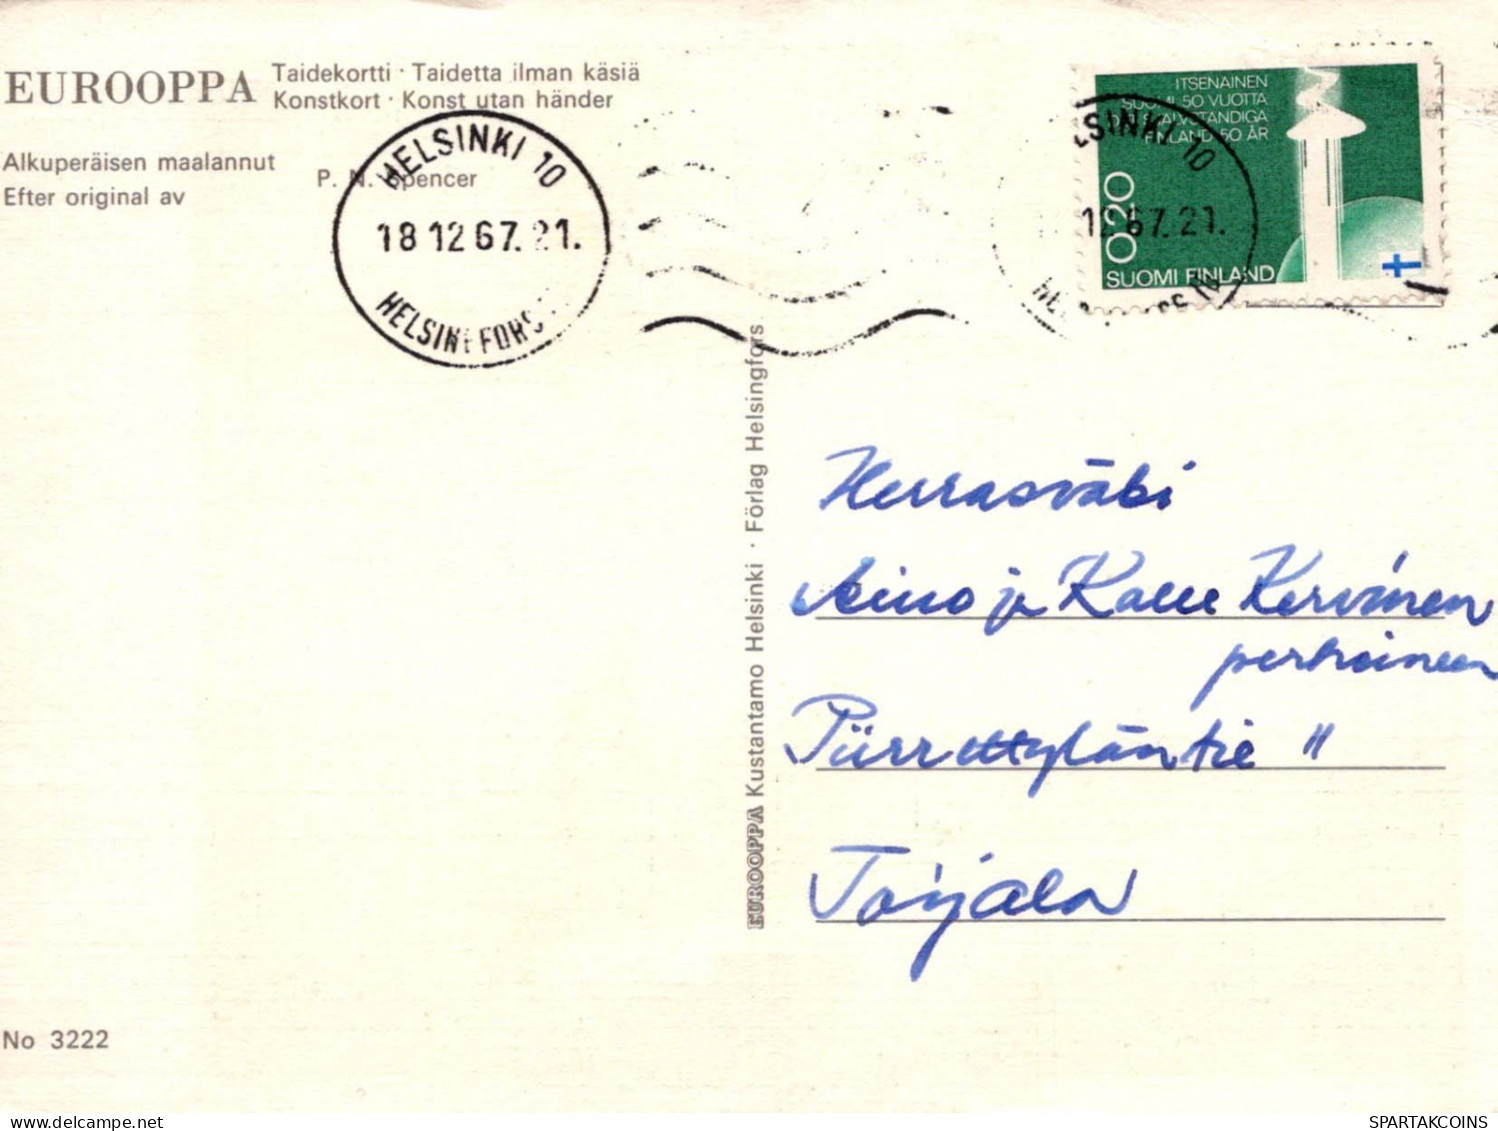 EUROOPPA
Taidekortti · Taidetta ilman käsiä
Konstkort · Konst utan händer
Alkuperäisen maalannut
Efter original av
P. N. Spencer
HELSINKI 10
18 12 67. 21.
HELSINGFORS
ITSENÄINEN
SUOMI 50 VUOTTA
SJÄLVSTÄNDIGA
FINLAND 50 ÅR
0,20
SUOMI FINLAND
HELSINKI 10
12 67. 21.
EUROOPPA Kustantamo Helsinki · Förlag Helsingfors
Herrasväki
Aino ja Kalle Kervinen
perheineen
Toijala
No 3222
SPARTAKCOINS